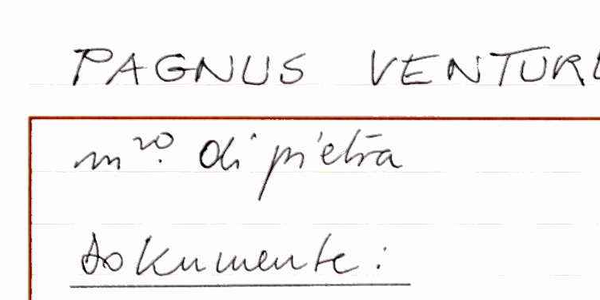 PAGNUS VENTUR
mro. di pietra
dokumente: